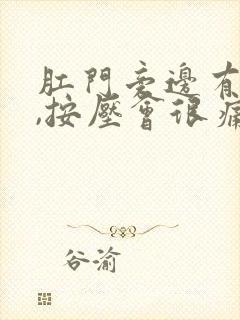 肛門旁邊有
,按壓會很痛
谷渝